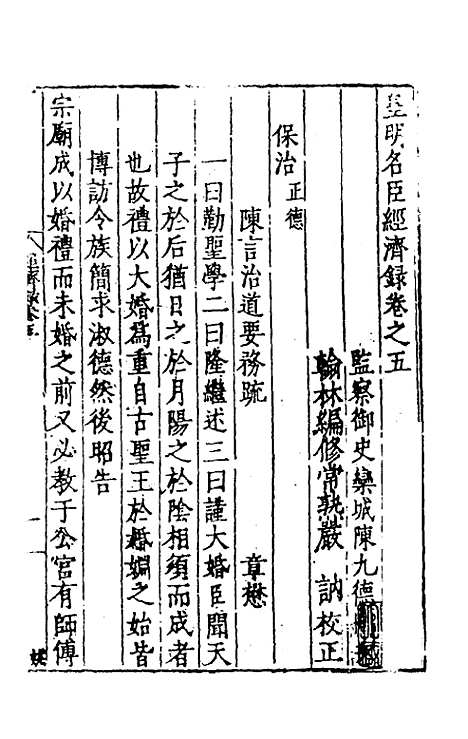 皇明名臣經濟録卷之五
監察御史欒城陳九德
翰林編修常熟嚴 訥校正
保治正德
陳言治道要務疏 章懋
一曰勤聖學二曰隆繼述三曰謹大婚臣聞天
子之於后猶日之於月陽之於陰相須而成者
也故禮以大婚爲重自古聖王於婚姻之始皆
博訪令族簡求淑德然後昭告
宗廟成以婚禮而未婚之前又必教于公宮有師傅